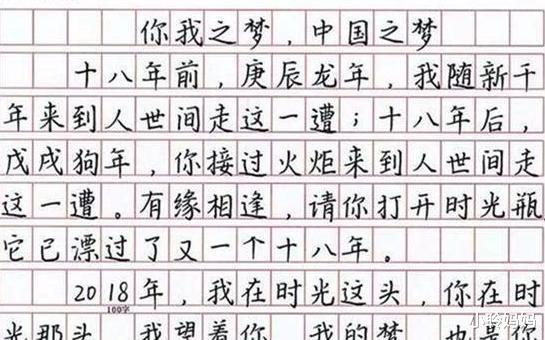 你我之梦，中国之梦
十八年前，庚辰龙年，我随新千
年来到人世间走这一遭；十八年后，
戊戌狗年，你接过火炬来到人世间走
这一遭。有缘相逢，请你打开时光瓶
它已漂过了又一个十八年。
2018年，我在时光这头，你在时
100字
光那头，我望着你，我的梦，也是你
小聆妈妈